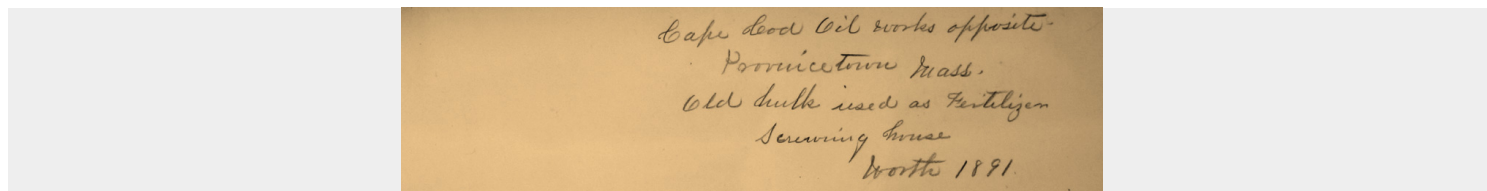 Cape Cod Oil works opposite
Provincetown Mass.
Old hulk used as Fertilizer
Screwing house
Worth 1891.